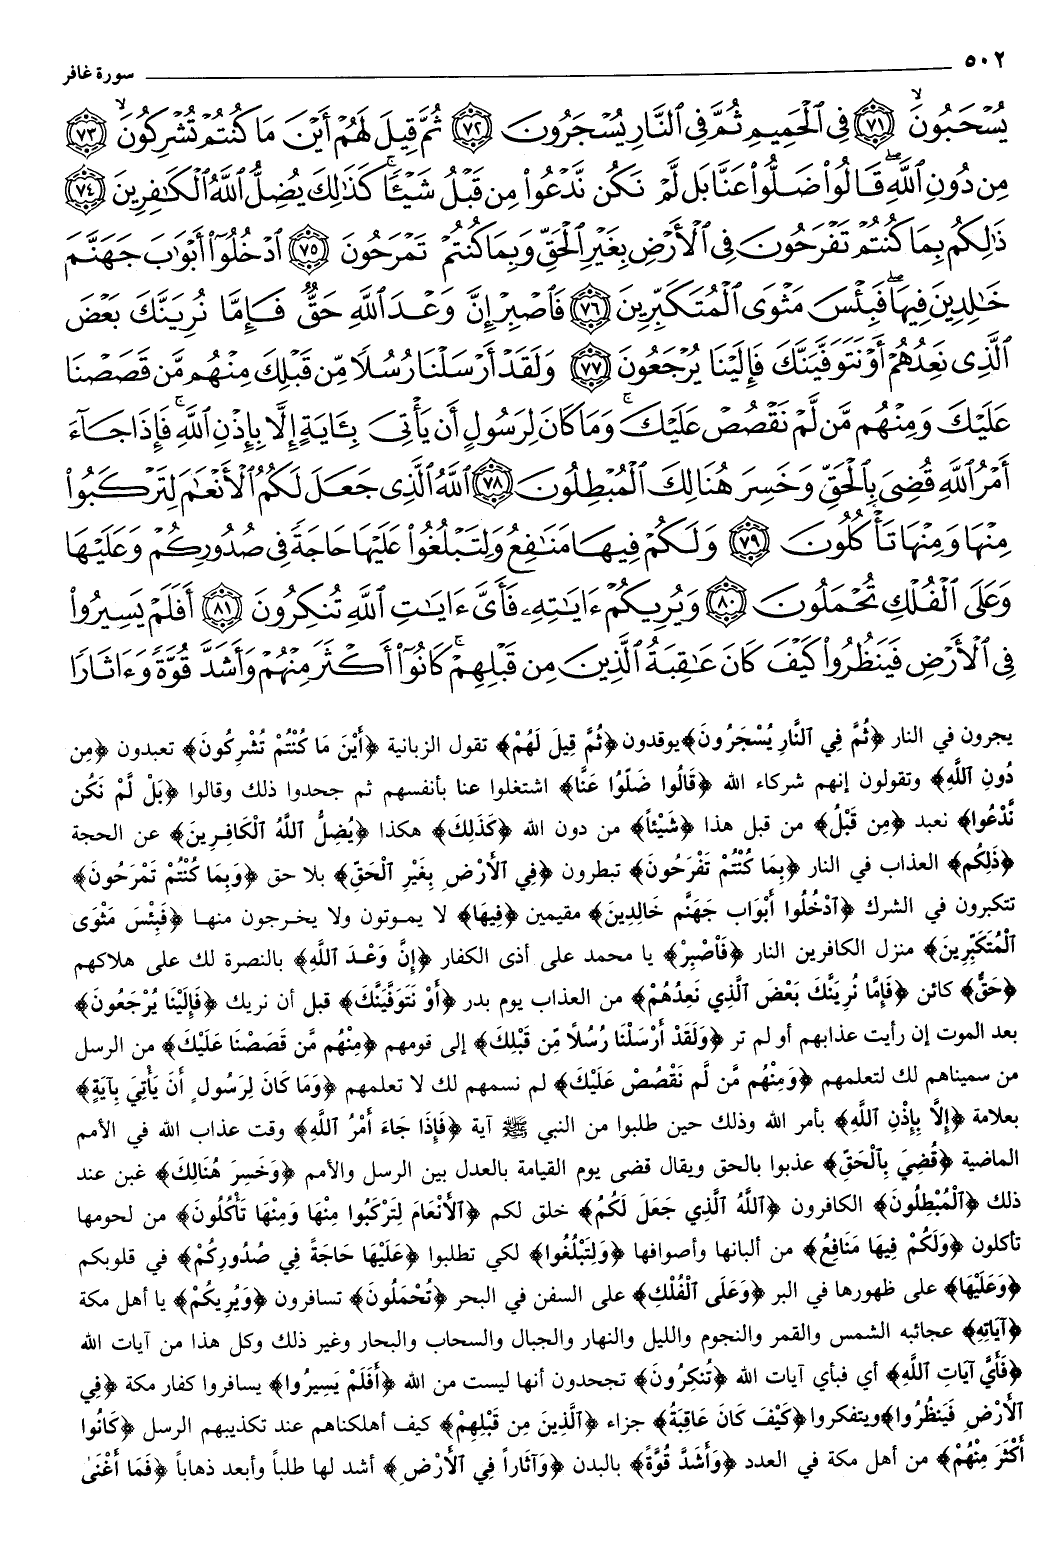 ٥٠٢ سورة غافر
يُسْحَبُونَ ۙ ﴿٧١﴾ فِي ٱلْحَمِيمِ ثُمَّ فِي ٱلنَّارِ يُسْجَرُونَ ﴿٧٢﴾ ثُمَّ قِيلَ لَهُمْ أَيْنَ مَا كُنتُمْ تُشْرِكُونَ ۙ ﴿٧٣﴾
مِن دُونِ ٱللَّهِ ۖ قَالُوا۟ ضَلُّوا۟ عَنَّا بَل لَّمْ نَكُن نَّدْعُوا۟ مِن قَبْلُ شَيْـًٔا ۚ كَذَٰلِكَ يُضِلُّ ٱللَّهُ ٱلْكَـٰفِرِينَ ﴿٧٤﴾
ذَٰلِكُم بِمَا كُنتُمْ تَفْرَحُونَ فِي ٱلْأَرْضِ بِغَيْرِ ٱلْحَقِّ وَبِمَا كُنتُمْ تَمْرَحُونَ ﴿٧٥﴾ ٱدْخُلُوٓا۟ أَبْوَٰبَ جَهَنَّمَ
خَـٰلِدِينَ فِيهَا ۖ فَبِئْسَ مَثْوَى ٱلْمُتَكَبِّرِينَ ﴿٧٦﴾ فَٱصْبِرْ إِنَّ وَعْدَ ٱللَّهِ حَقٌّ ۚ فَإِمَّا نُرِيَنَّكَ بَعْضَ
ٱلَّذِى نَعِدُهُمْ أَوْ نَتَوَفَّيَنَّكَ فَإِلَيْنَا يُرْجَعُونَ ﴿٧٧﴾ وَلَقَدْ أَرْسَلْنَا رُسُلًا مِّن قَبْلِكَ مِنْهُم مَّن قَصَصْنَا
عَلَيْكَ وَمِنْهُم مَّن لَّمْ نَقْصُصْ عَلَيْكَ ۚ وَمَا كَانَ لِرَسُولٍ أَن يَأْتِىَ بِـَٔايَةٍ إِلَّا بِإِذْنِ ٱللَّهِ ۚ فَإِذَا جَآءَ
أَمْرُ ٱللَّهِ قُضِىَ بِٱلْحَقِّ وَخَسِرَ هُنَالِكَ ٱلْمُبْطِلُونَ ﴿٧٨﴾ ٱللَّهُ ٱلَّذِى جَعَلَ لَكُمُ ٱلْأَنْعَـٰمَ لِتَرْكَبُوا۟
مِنْهَا وَمِنْهَا تَأْكُلُونَ ﴿٧٩﴾ وَلَكُمْ فِيهَا مَنَـٰفِعُ وَلِتَبْلُغُوا۟ عَلَيْهَا حَاجَةً فِى صُدُورِكُمْ وَعَلَيْهَا
وَعَلَى ٱلْفُلْكِ تُحْمَلُونَ ﴿٨٠﴾ وَيُرِيكُمْ ءَايَـٰتِهِۦ فَأَىَّ ءَايَـٰتِ ٱللَّهِ تُنكِرُونَ ﴿٨١﴾ أَفَلَمْ يَسِيرُوا۟
فِى ٱلْأَرْضِ فَيَنظُرُوا۟ كَيْفَ كَانَ عَـٰقِبَةُ ٱلَّذِينَ مِن قَبْلِهِمْ ۚ كَانُوٓا۟ أَكْثَرَ مِنْهُمْ وَأَشَدَّ قُوَّةً وَءَاثَارًا
يجرون في النار ﴿ثُمَّ فِي ٱلنَّارِ يُسْجَرُونَ﴾ يوقدون ﴿ثُمَّ قِيلَ لَهُمْ﴾ تقول الزبانية ﴿أَيْنَ مَا كُنْتُمْ تُشْرِكُونَ﴾ تعبدون ﴿مِن
دُونِ ٱللَّهِ﴾ وتقولون إنهم شركاء الله ﴿قَالُوا ضَلُّوا عَنَّا﴾ اشتغلوا عنا بأنفسهم ثم جحدوا ذلك وقالوا ﴿بَلْ لَمْ نَكُن
نَّدْعُوا﴾ نعبد ﴿مِن قَبْلُ﴾ من قبل هذا ﴿شَيْئاً﴾ من دون الله ﴿كَذَلِكَ﴾ هكذا ﴿يُضِلُّ ٱللَّهُ ٱلْكَافِرِينَ﴾ عن الحجة
﴿ذَلِكُم﴾ العذاب في النار ﴿بِمَا كُنْتُمْ تَفْرَحُونَ﴾ تبطرون ﴿فِي ٱلأَرْضِ بِغَيْرِ ٱلْحَقِّ﴾ بلا حق ﴿وَبِمَا كُنْتُمْ تَمْرَحُونَ﴾
تتكبرون في الشرك ﴿ٱدْخُلُوا أَبْوَابَ جَهَنَّم خَالِدِينَ﴾ مقيمين ﴿فِيهَا﴾ لا يموتون ولا يخرجون منها ﴿فَبِئْسَ مَثْوَى
ٱلْمُتَكَبِّرِينَ﴾ منزل الكافرين النار ﴿فَٱصْبِرْ﴾ يا محمد على أذى الكفار ﴿إِنَّ وَعْدَ ٱللَّهِ﴾ بالنصرة لك على هلاكهم
﴿حَقٌّ﴾ كائن ﴿فَإِمَّا نُرِيَنَّكَ بَعْضَ ٱلَّذِي نَعِدُهُمْ﴾ من العذاب يوم بدر ﴿أَوْ نَتَوَفَّيَنَّكَ﴾ قبل أن نريك ﴿فَإِلَيْنَا يُرْجَعُونَ﴾
بعد الموت إن رأيت عذابهم أو لم تر ﴿وَلَقَدْ أَرْسَلْنَا رُسُلاً مِّن قَبْلِكَ﴾ إلى قومهم ﴿مِنْهُم مَّن قَصَصْنَا عَلَيْكَ﴾ من الرسل
من سميناهم لك لتعلمهم ﴿وَمِنْهُم مَّن لَّم نَقْصُصْ عَلَيْكَ﴾ لم نسمهم لك لا تعلمهم ﴿وَمَا كَانَ لِرَسُولٍ أَنْ يَأْتِيَ بِآيَةٍ﴾
بعلامة ﴿إِلاَّ بِإِذْنِ ٱللَّهِ﴾ بأمر الله وذلك حين طلبوا من النبي ﷺ آية ﴿فَإِذَا جَاءَ أَمْرُ ٱللَّهِ﴾ وقت عذاب الله في الأمم
الماضية ﴿قُضِيَ بِٱلْحَقِّ﴾ عذبوا بالحق ويقال قضى يوم القيامة بالعدل بين الرسل والأمم ﴿وَخَسِرَ هُنَالِكَ﴾ غبن عند
ذلك ﴿ٱلْمُبْطِلُونَ﴾ الكافرون ﴿ٱللَّهُ ٱلَّذِي جَعَلَ لَكُمُ﴾ خلق لكم ﴿ٱلأَنْعَامَ لِتَرْكَبُوا مِنْهَا وَمِنْهَا تَأْكُلُونَ﴾ من لحومها
تأكلون ﴿وَلَكُمْ فِيهَا مَنَافِعُ﴾ من ألبانها وأصوافها ﴿وَلِتَبْلُغُوا﴾ لكي تطلبوا ﴿عَلَيْهَا حَاجَةً فِي صُدُورِكُمْ﴾ في قلوبكم
﴿وَعَلَيْهَا﴾ على ظهورها في البر ﴿وَعَلَى ٱلْفُلْكِ﴾ على السفن في البحر ﴿تُحْمَلُونَ﴾ تسافرون ﴿وَيُرِيكُمْ﴾ يا أهل مكة
﴿آيَاتِهِ﴾ عجائبه الشمس والقمر والنجوم والليل والنهار والجبال والسحاب والبحار وغير ذلك وكل هذا من آيات الله
﴿فَأَيَّ آيَاتِ ٱللَّهِ﴾ أي فبأي آيات الله ﴿تُنكِرُونَ﴾ تجحدون أنها ليست من الله ﴿أَفَلَمْ يَسِيرُوا﴾ يسافروا كفار مكة ﴿فِي
ٱلأَرْضِ فَيَنظُرُوا﴾ ويتفكروا ﴿كَيْفَ كَانَ عَاقِبَةُ﴾ جزاء ﴿ٱلَّذِينَ مِن قَبْلِهِمْ﴾ كيف أهلكناهم عند تكذيبهم الرسل ﴿كَانُوا
أَكْثَرَ مِنْهُمْ﴾ من أهل مكة في العدد ﴿وَأَشَدَّ قُوَّةً﴾ بالبدن ﴿وَآثَاراً فِي ٱلأَرْضِ﴾ أشد لها طلباً وأبعد ذهاباً ﴿فَمَا أَغْنَىٰ